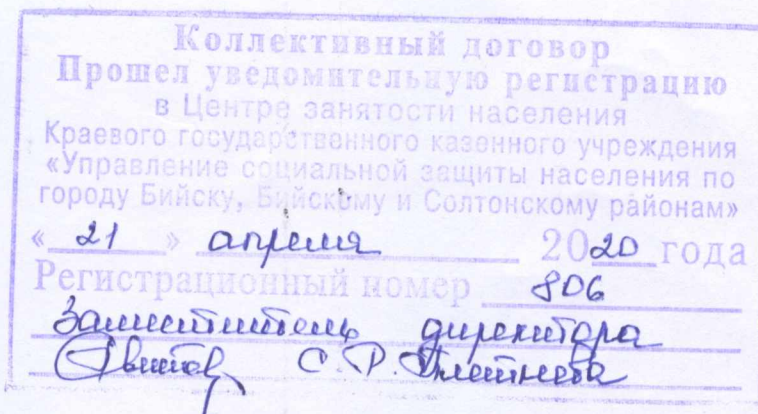 Коллективный договор
Прошел уведомительную регистрацию
в Центре занятости населения
Краевого государственного казенного учреждения
«Управление социальной защиты населения по
городу Бийску, Бийскому и Солтонскому районам»
« 21 » апреля 2020 года
Регистрационный номер 806
Заместитель директора
С.Р. Плетнева